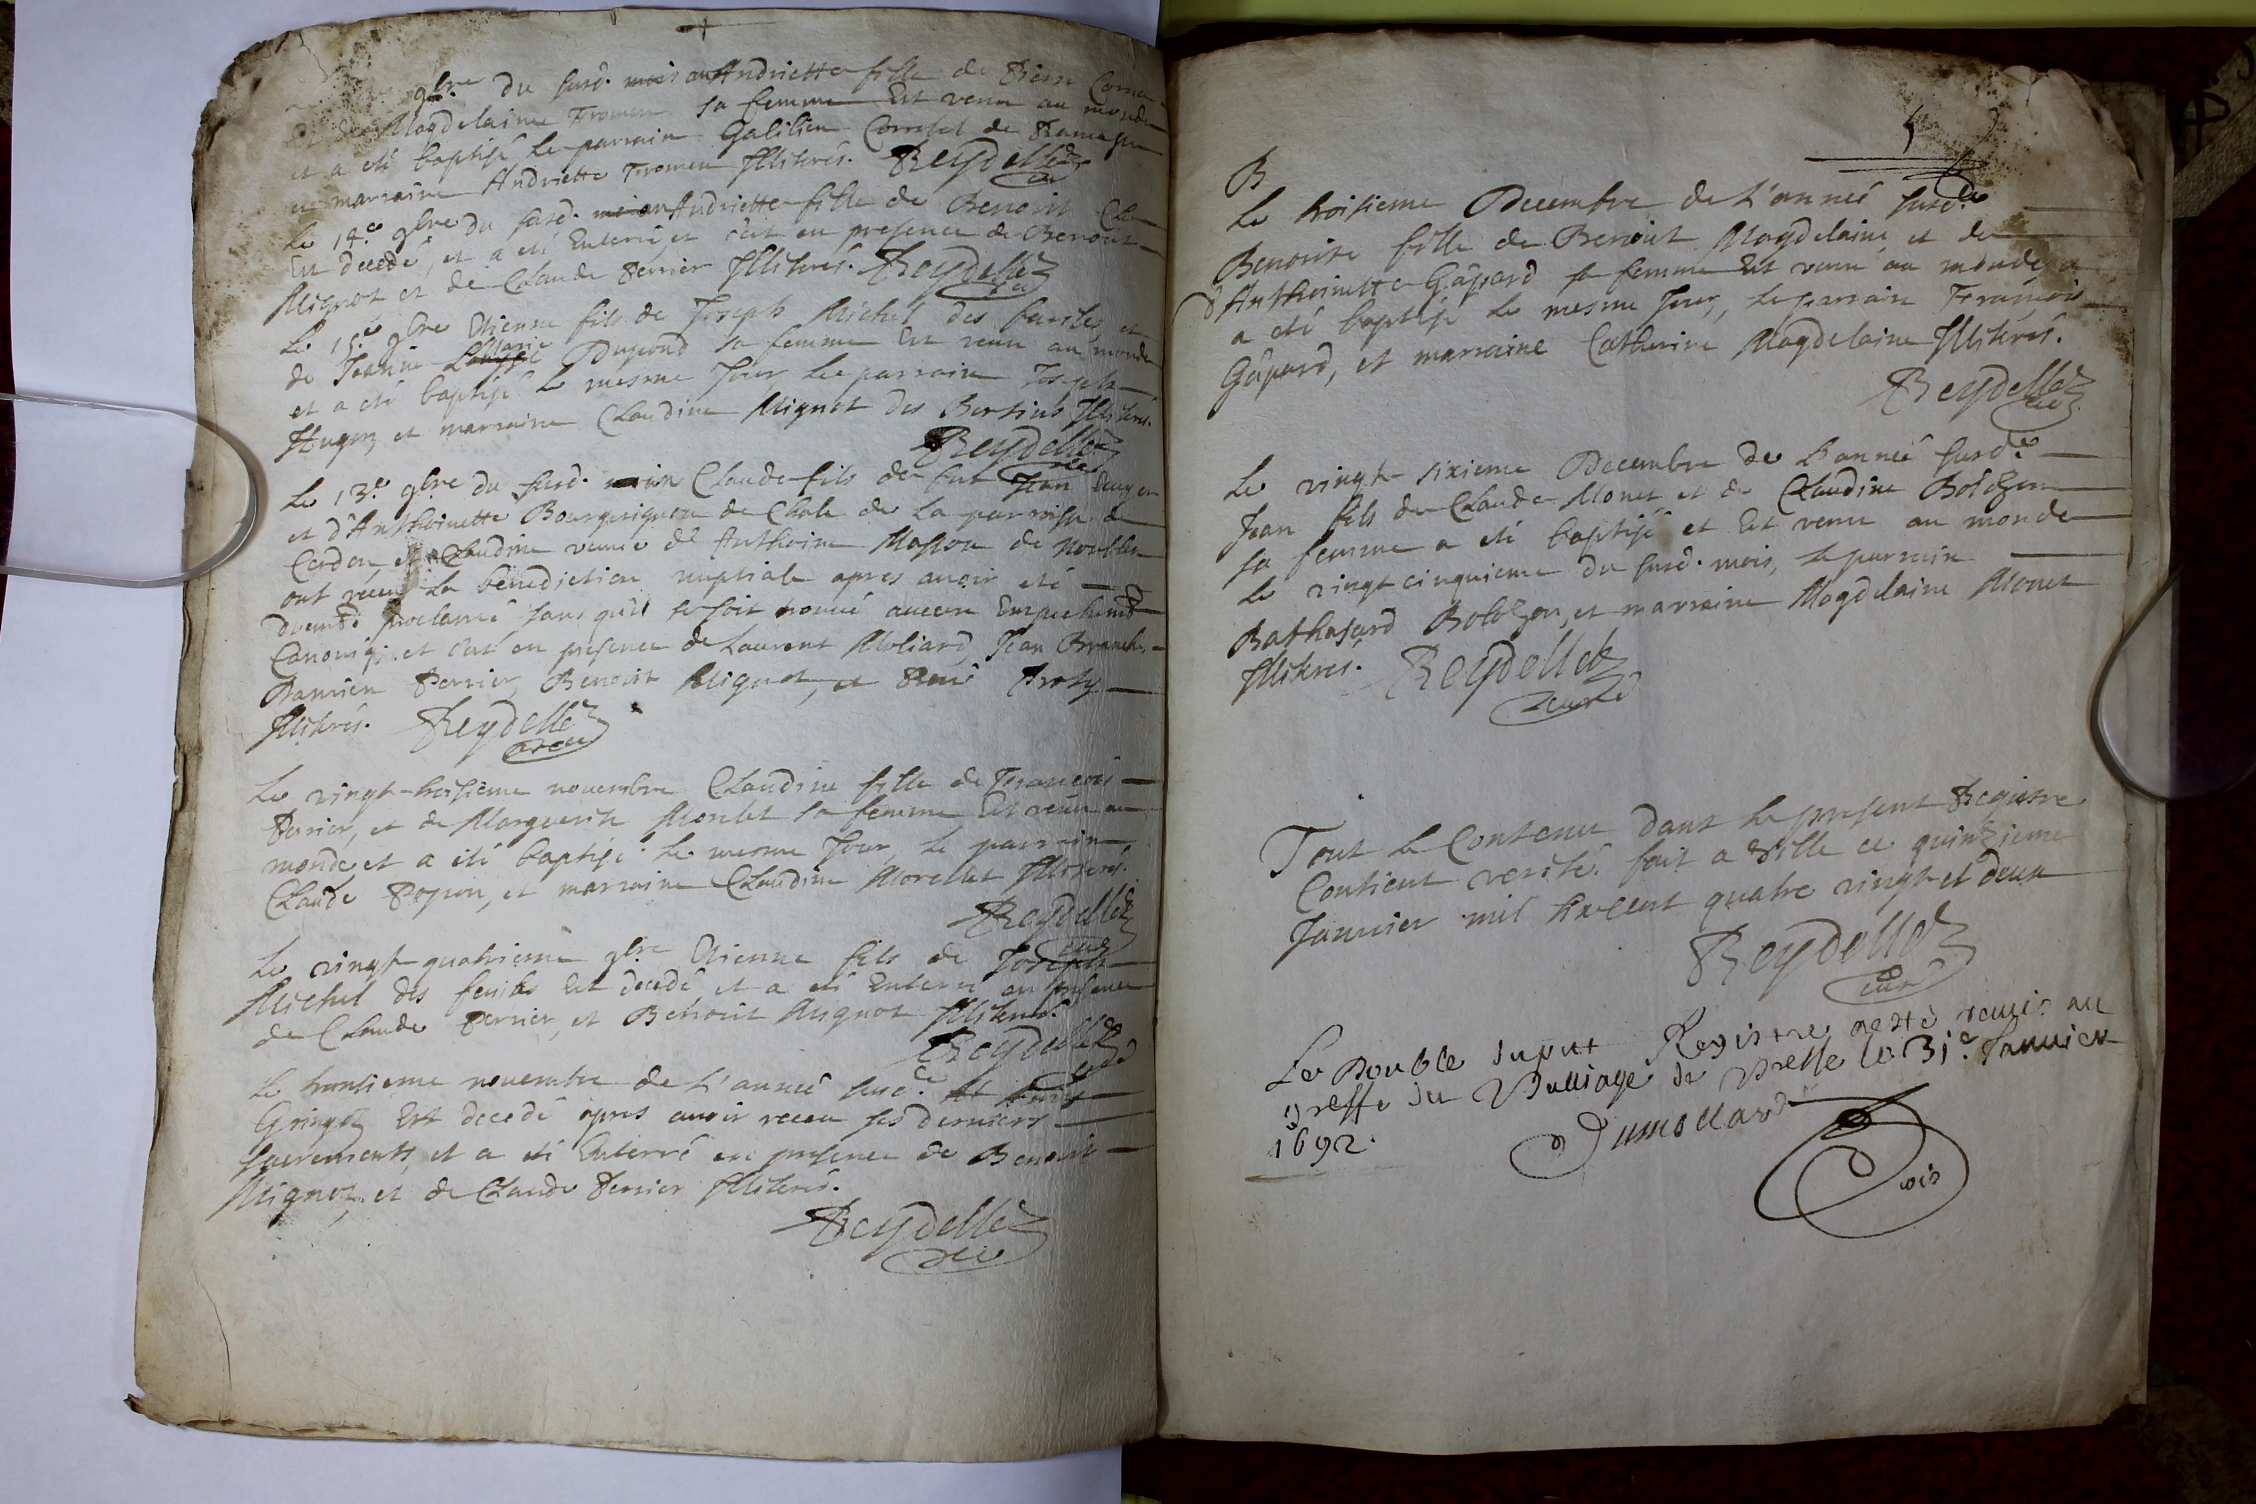 9bre du susd. an Andriette fille de Pierre
Magdelaine Fromen sa femme Est venu au monde
et a eté baptisé Le parrain Galilien de
et marraine Andriette Fromen Illiterés. Reydellet
curé
Le 14.e 9bre du susd. an Andriette fille de Benoist
Est decedé, et a eté Enterré, et c'est en presence de Benoist
Mignot et de Claude Perrier Illiterés. Reydellet
curé
Le 15.e 9bre Etienne fils de Joseph Michel des et
de Jeanne Marie Dupond sa femme Est venu au monde
et a eté baptisé le mesme Jour, Le parrain Joseph
Hugon, et marraine Claudine Mignot des Bertins Illiterés.
Reydellet
Le 13.e 9bre du susd. Claude fils de feu Jean
et d'Anthoinette de Chale de la parroisse de
Cerdon, et Claudine veuve de Anthoine Masson de
ont receu la benediction nuptiale apres avoir eté
duemt proclamé sans qu'il se soit trouvé aucun Empechemt
Canoniq; et c'est en presence de Laurent Moliard, Jean
Damien Perrier, Benoist Mignot, et René
Illiterés. Reydellet
curé
Le vingt-troisieme novembre Claudine fille de François
Perrier, et de Marguerite Morelet sa femme Est venu au
monde et a eté baptisé le mesme Jour, le parrain
Claude, et marraine Claudine Morelet Illiterés.
Reydellet
curé
Le vingt quatrieme 9bre Etienne fils de Joseph
Michel des Est decedé et a eté Enterré en presence
de Claude Perrier, et Benoist Mignot Illiterés.
Reydellet
curé
Le trentieme novembre de L'année susd.e
Gringoz Est decedé apres avoir receu ses derniers
sacrements, et a eté Enterré en presence de Benoist
Mignot, et de Claude Perrier Illiterés.
Reydellet
curé
B
Le troisieme Decembre de L'anneé susd.e
Benoiste fille de Benoist Magdelaine, et de
d'Anthoinette Gaspard sa femme Est venu au monde,
a eté baptisé le mesme Jour, Le parrain François
Gaspard, et marraine Catherine Magdelaine Illiterés.
Reydellet
curé
Le vingt-sixieme Decembre de L'anneé susd.e
Jean fils de Claude Monet et de Claudine Bolozon
sa femme a eté baptisé et Est venu au monde
le vingt cinquieme du susd. mois, le parrain
Bathasard Bolozon, et marraine Magdelaine Monet
Illiterés. Reydellet
curé
Tout le Contenu dans le present Registre
Contient verité. fait a ville ce quinzieme
Janvier mil six cent quatre vingt et deux
Reydellet
curé
Le Double du put Registre a esté remis au
greffe du Balliage de Bresse le 31.e Janvier
1692.
Dumollard